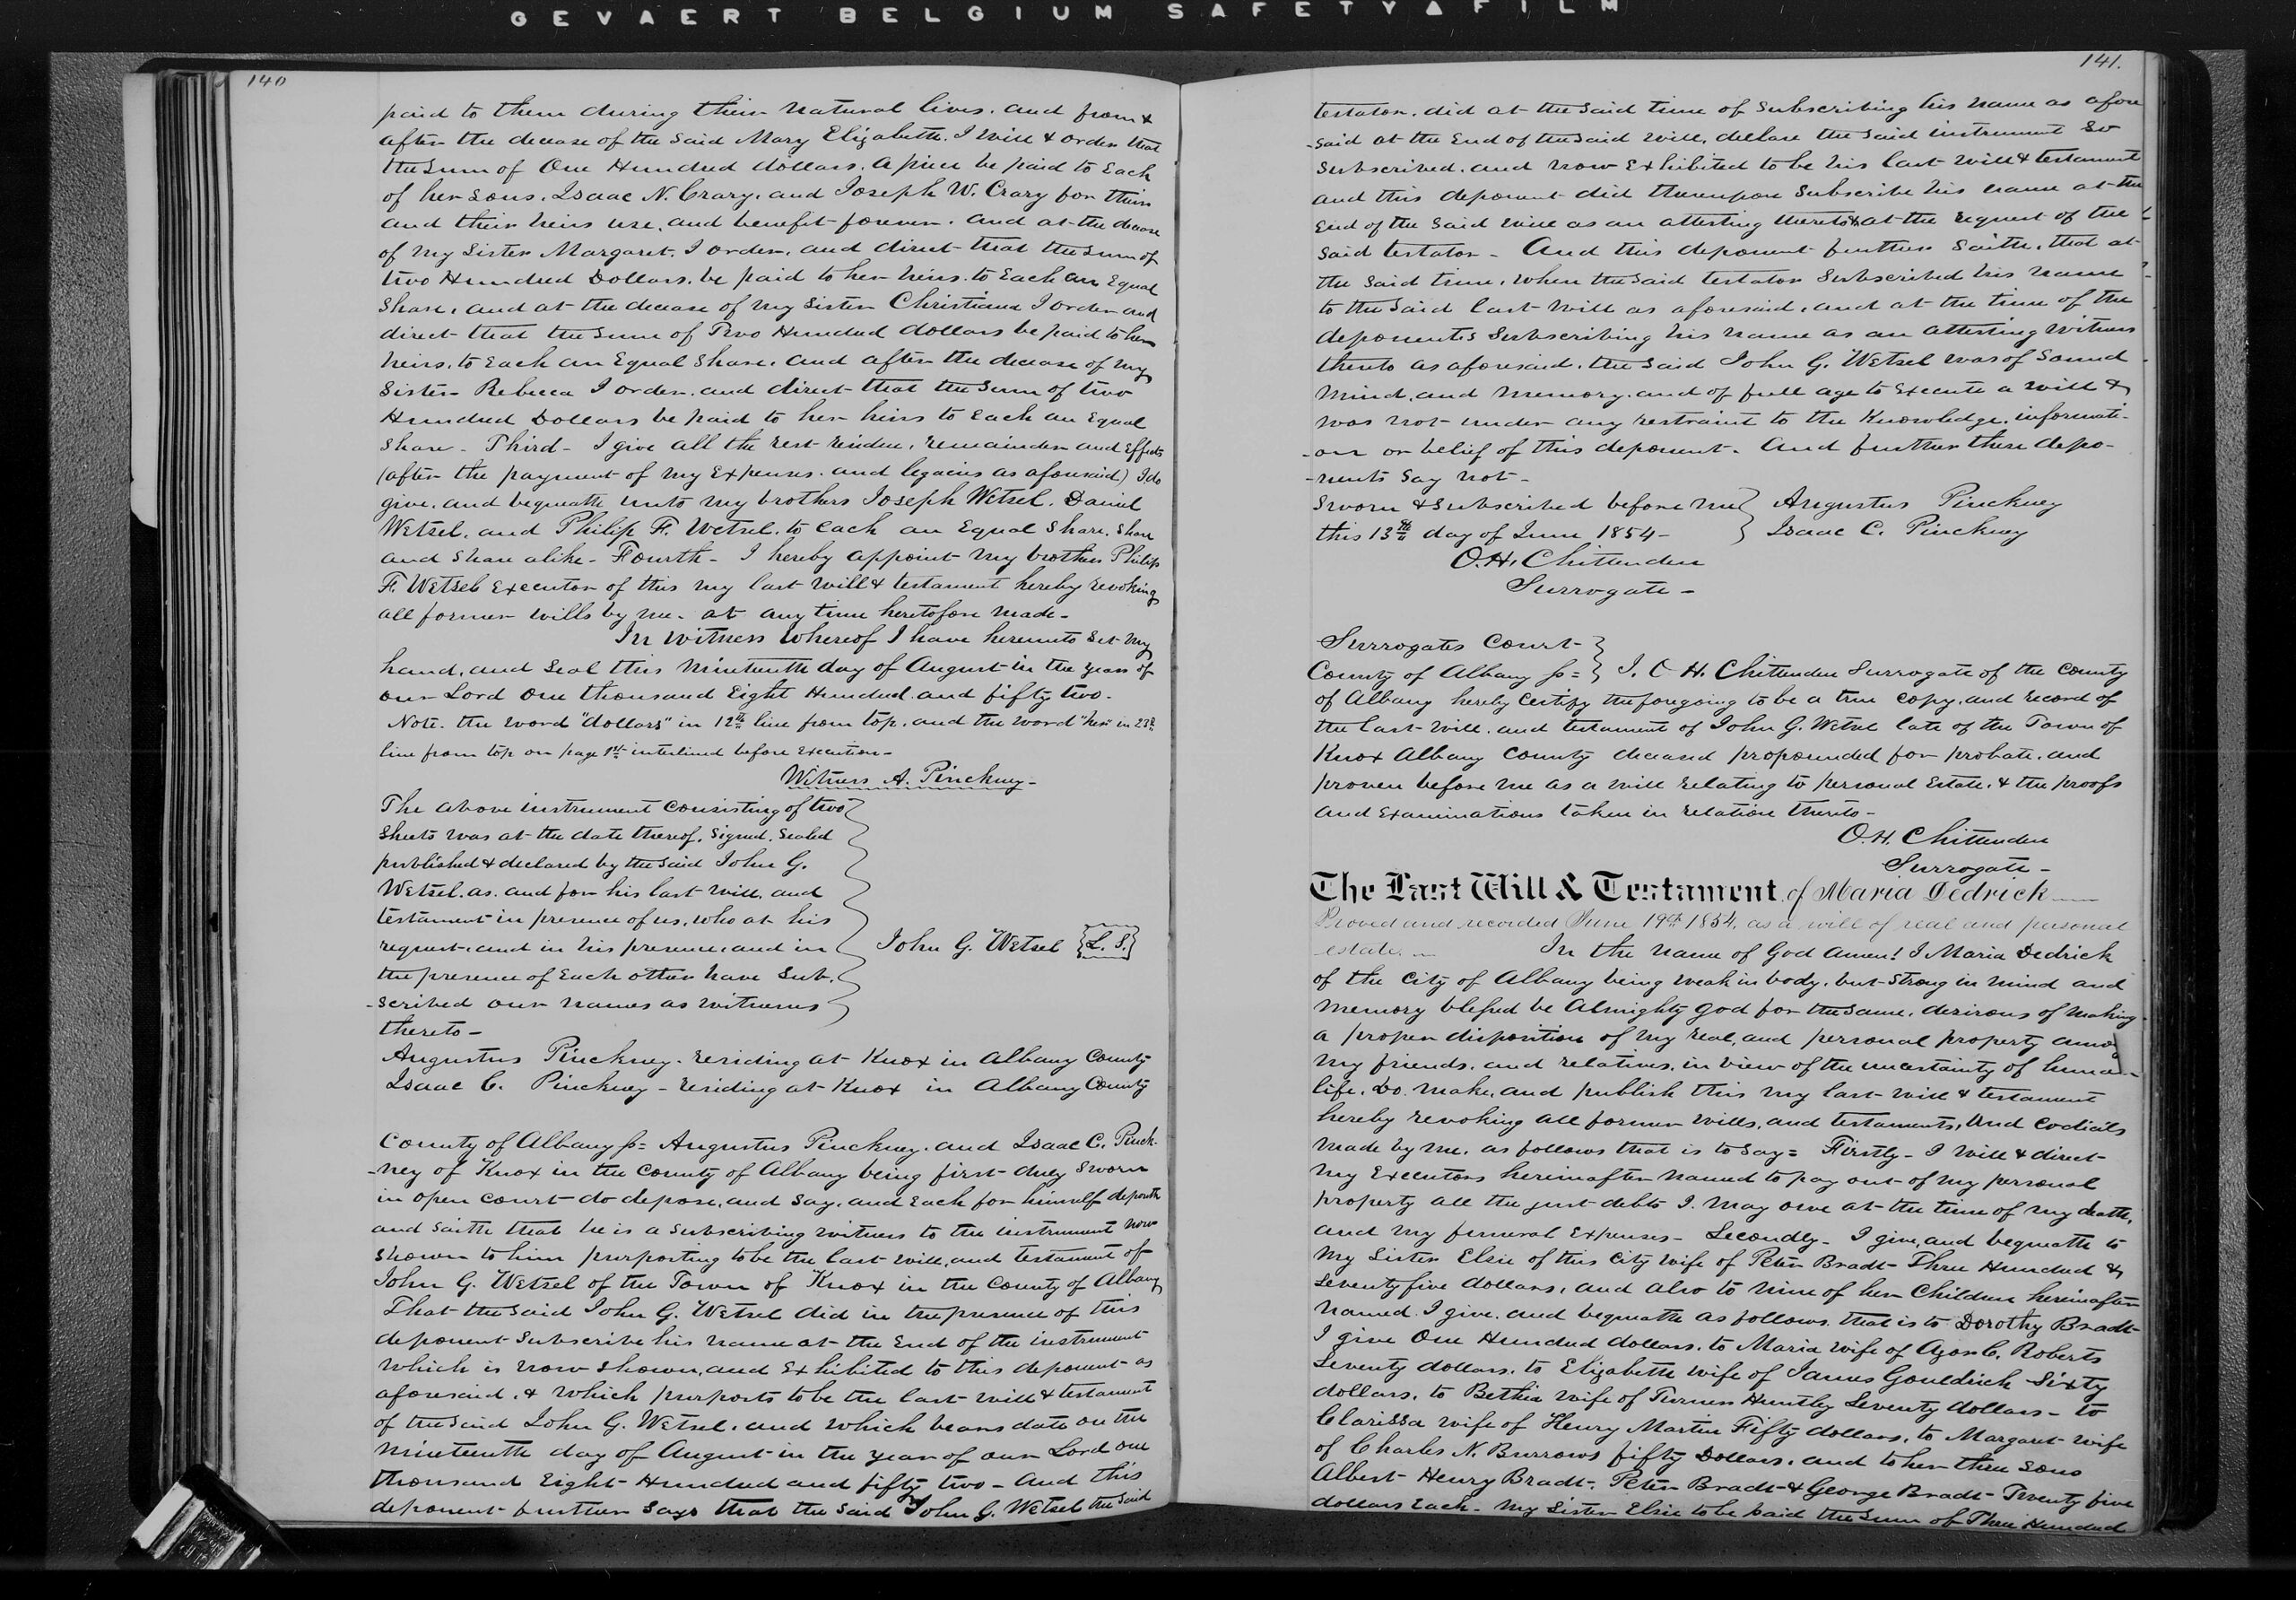 GEVAERT BELGIUM SAFETY▲FILM
140
paid to them during their natural lives. and from &
after the decease of the said Mary Elizabeth. I will & order that
the sum of One Hundred dollars. a piece be paid to Each
of her sons, Isaac N. Crary, and Joseph W. Crary for their
and their heirs use, and benefit forever. and at the decease
of my sister Margaret. I order, and direct that the sum of
two Hundred Dollars, be paid to her heirs. to Each an Equal
share, and at the decease of my sister Christiana I order and
direct that the sum of Two Hundred dollars be paid to her
heirs, to Each an Equal share. and after the decease of my
sister Rebecca I order and direct that the sum of two
Hundred Dollars be paid to her heirs to Each an Equal
share - Third - I give all the rest residue, remainder and Effects
(after the payment of my Expenses. and legacies as aforesaid) I do
give, and bequeath unto my brothers Joseph Wetsel. Daniel
Wetsel, and Philip F. Wetsel, to Each an Equal share. share
and share alike - Fourth - I hereby appoint my brother Philip
F. Wetsel Executor of this my last will & testament hereby revoking
all former wills by me. at any time heretofore made -
In Witness Whereof I have hereunto set my
hand, and seal this Nineteenth day of August in the year of
our Lord one thousand Eight Hundred and fifty two.
Note. the word "dollars" in 12th line from top. and the word "her" in 23d
line from top on page 1st interlined before Execution -
Witness A. Pinckney -
The above instrument consisting of two
sheets was at the date thereof, signed. sealed
published & declared by the said John G.
Wetsel. as. and for his last will, and
testament in presence of us, who at his
request, and in his presence, and in
the presence of Each other have sub-
-scribed our names as witnesses
thereto -
John G. Wetsel {L. S.}
Augustus Pinckney - residing at Knox in Albany County
Isaac C. Pinckney - residing at Knox in Albany County
County of Albany ss= Augustus Pinckney. and Isaac C. Pinck-
-ney of Knox in the County of Albany being first duly sworn
in open court do depose, and say, and Each for himself deposeth
and saith that he is a subscribing witness to the instrument now
shown to him purporting to be the last will, and testament of
John G. Wetsel of the Town of Knox in the County of Albany
That the said John G. Wetsel did in the presence of this
deponent subscribe his name at the End of the instrument
which is now shown, and Exhibited to this deponent as
aforesaid, & which purports to be the last will & testament
of the said John G. Wetsel, and which bears date on the
Nineteenth day of August in the year of our Lord one
thousand Eight Hundred and fifty two - And this
deponent further says that the said John G. Wetsel the said
141.
testator, did at the said time of subscribing his name as afore
-said at the End of the said will, declare the said instrument so
subscribed. and now Exhibited to be his last will & testament
and this deponent did thereupon subscribe his name at the
End of the said will as an attesting thereto at the request of the
said testator - And this deponent further saith, that at
the said time, when the said testator subscribed his name
to the said last will as aforesaid, and at the time of the
deponents subscribing his name as an attesting witness
thereto as aforesaid, the said John G. Wetsel was of sound
mind, and memory, and of full age to Execute a will &
was not under any restraint to the knowledge, informati-
-on or belief of this deponent. And further these depo-
-nents say not -
Sworn & subscribed before me } Augustus Pinckney
this 13th day of June 1854 - } Isaac C. Pinckney
O. H. Chittenden
Surrogate -
Surrogates Court }
County of Albany ss= } I. O H. Chittenden Surrogate of the County
of Albany hereby certify the foregoing to be a true copy, and record of
the last will, and testament of John G. Wetsel late of the Town of
Knox Albany County deceased propounded for probate, and
proven before me as a will relating to personal Estate. & the proofs
and Examinations taken in relation thereto -
O. H. Chittenden
Surrogate -
The Last Will & Testament of Maria Dedrick
Proved and recorded June 19th 1854, as a will of real and personal
estate. In the name of God Amen! I Maria Dedrick
of the City of Albany being weak in body, but strong in mind and
memory blessed be Almighty God for the same, desirous of making
a proper disposition of my real, and personal property
my friends. and relatives, in view of the uncertainty of
life, Do. make, and publish this my last will & testament
hereby revoking all former wills, and testaments, And Codicils
made by me, as follows that is to say= Firstly - I will & direct
my Executors hereinafter named to pay out of my personal
property all the just debts I. may owe at the time of my death,
and my funeral Expenses - Secondly - I give, and bequeath to
my sister Elsie of this City wife of Peter Bradt Three Hundred &
Seventy five dollars, and also to nine of her Children hereinafter
named I give, and bequeath as follows that is to Dorothy Bradt
I give One Hundred dollars. to Maria wife of Azor C. Roberts
Seventy dollars. to Elizabeth wife of James Gouldrich Sixty
dollars, to Bethia wife of Turner Huntley Seventy dollars - to
Clarissa wife of Henry Martin Fifty dollars, to Margaret wife
of Charles N. Burrows fifty Dollars, and to her three sons
Albert Henry Bradt, Peter Bradt & George Bradt Twenty five
dollars Each - my sister Elsie to be paid the sum of Three Hundred